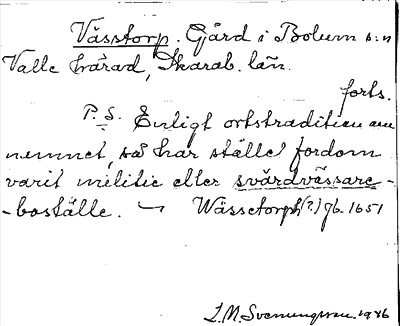 Vässtorp. Gård i Bolum s:n
Valle härad, Skarab. län.
forts.
P.S. Enligt ortstradition om
nemnet, så har stället fordom
varit militie eller svärdvässare-
-boställe. — Wässetorph(?) Jb. 1651
L.M. Svenungsson. 1946